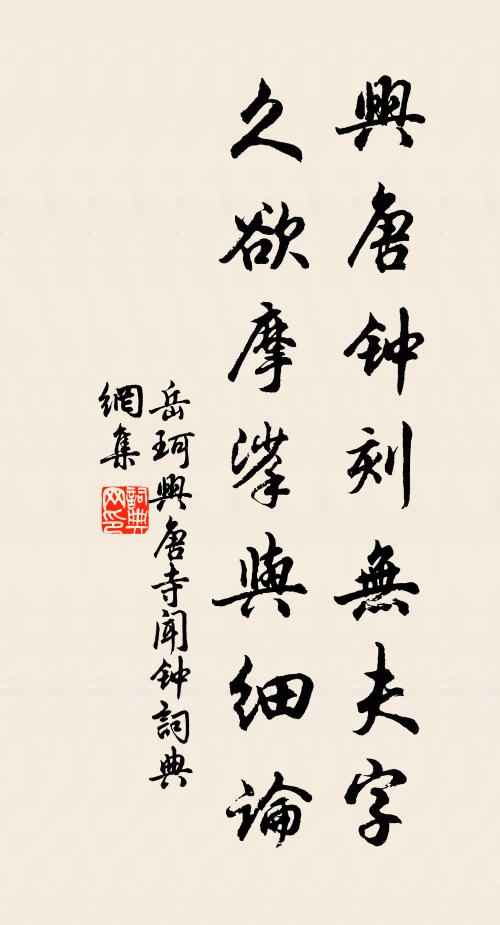 興唐钟刻無夫字
久欲摩挲與细論
岳珂興唐寺聞钟詞典
網集
詞典网印